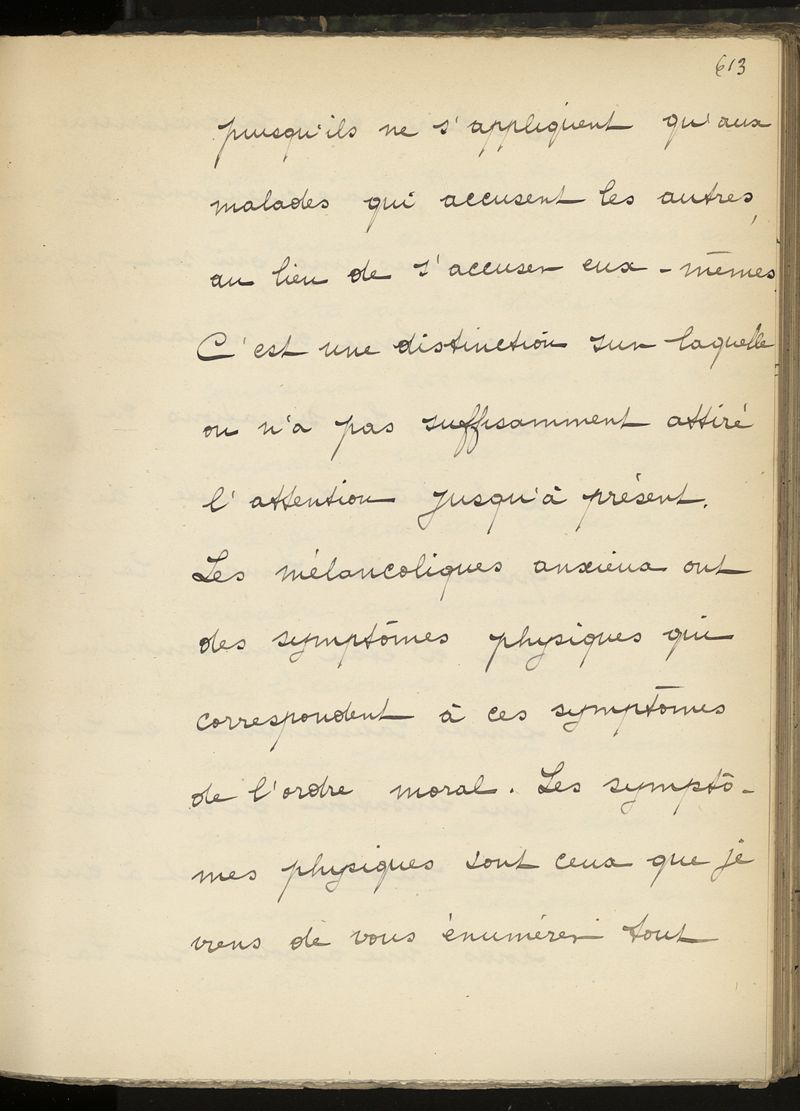 613
puisqu'ils ne s'appliquent qu'aux
malades qui accusent les autres,
au lieu de s'accuser eux-mêmes
C'est une distinction sur laquelle
on n'a pas suffisamment attiré
l'attention jusqu'à présent.
Les mélancoliques anxieux ont
des symptômes physiques qui
correspondent à ces symptômes
de l'ordre moral. Les symptô-
mes physiques sont ceux que je
viens de vous énumérer tout